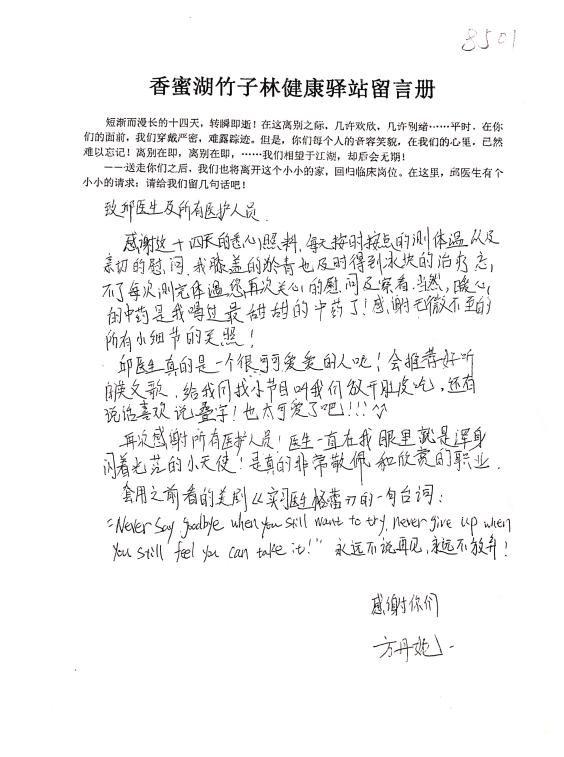 8501
香蜜湖竹子林健康驿站留言册
短渐而漫长的十四天，转瞬即逝！在这离别之际，几许欢欣，几许别绪……平时，在你
们的面前，我们穿戴严密，难露踪迹。但是，你们每个人的音容笑貌，在我们的心里，已然
难以忘记！离别在即，离别在即，……我们相望于江湖，却后会无期！
——送走你们之后，我们也将离开这个小小的家，回归临床岗位。在这里，邱医生有个
小小的请求：请给我们留几句话吧！
致邱医生及所有医护人员.
感谢这十四天的悉心照料，每天按时按点的测体温以及
亲切的慰问，我膝盖的瘀青也及时得到冰块的治疗，忘
不了每次测完体温您再次关心的慰问及察看，当然，暖心
的中药是我喝过最甜甜的中药了！感谢无微不至的
所有小细节的关照！
邱医生真的是一个很可可爱爱的人呢！会推荐好听
闽文歌，给我们找小节目叫我们放开肚皮吃，还有
说话喜欢说叠字！也太可爱了吧！！！
再次感谢所有医护人员！医生一直在我眼里就是浑身
闪着光芒的小天使！是真的非常敬佩和欣赏的职业.
套用之前看的美剧《实习医生格蕾》的一句台词：
"Never say goodbye when you still want to try, never give up when
you still feel you can take it!" 永远不说再见，永远不放弃！
感谢你们
方丹